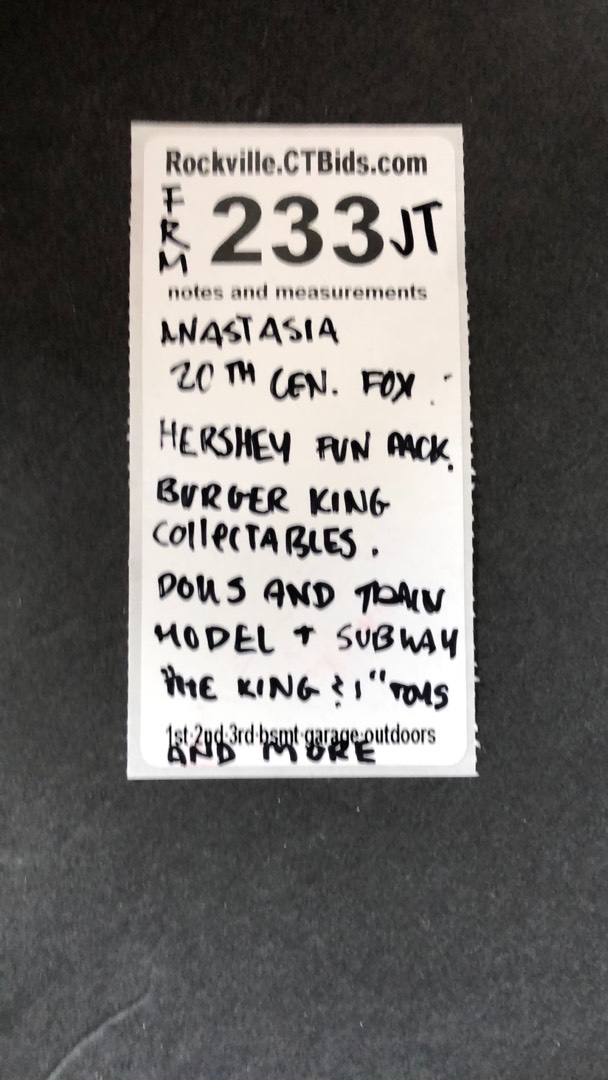 Rockville.CTBids.com
FRM 233 JT
notes and measurements
ANASTASIA
20TH CEN. FOX.
HERSHEY FUN PACK.
BURGER KING
COllECTABLES.
DOLLS AND TRAIN
MODEL + SUBWAY
THE KING & I" TOYS
1st·2nd·3rd·bsmt·garage·outdoors
AND MORE